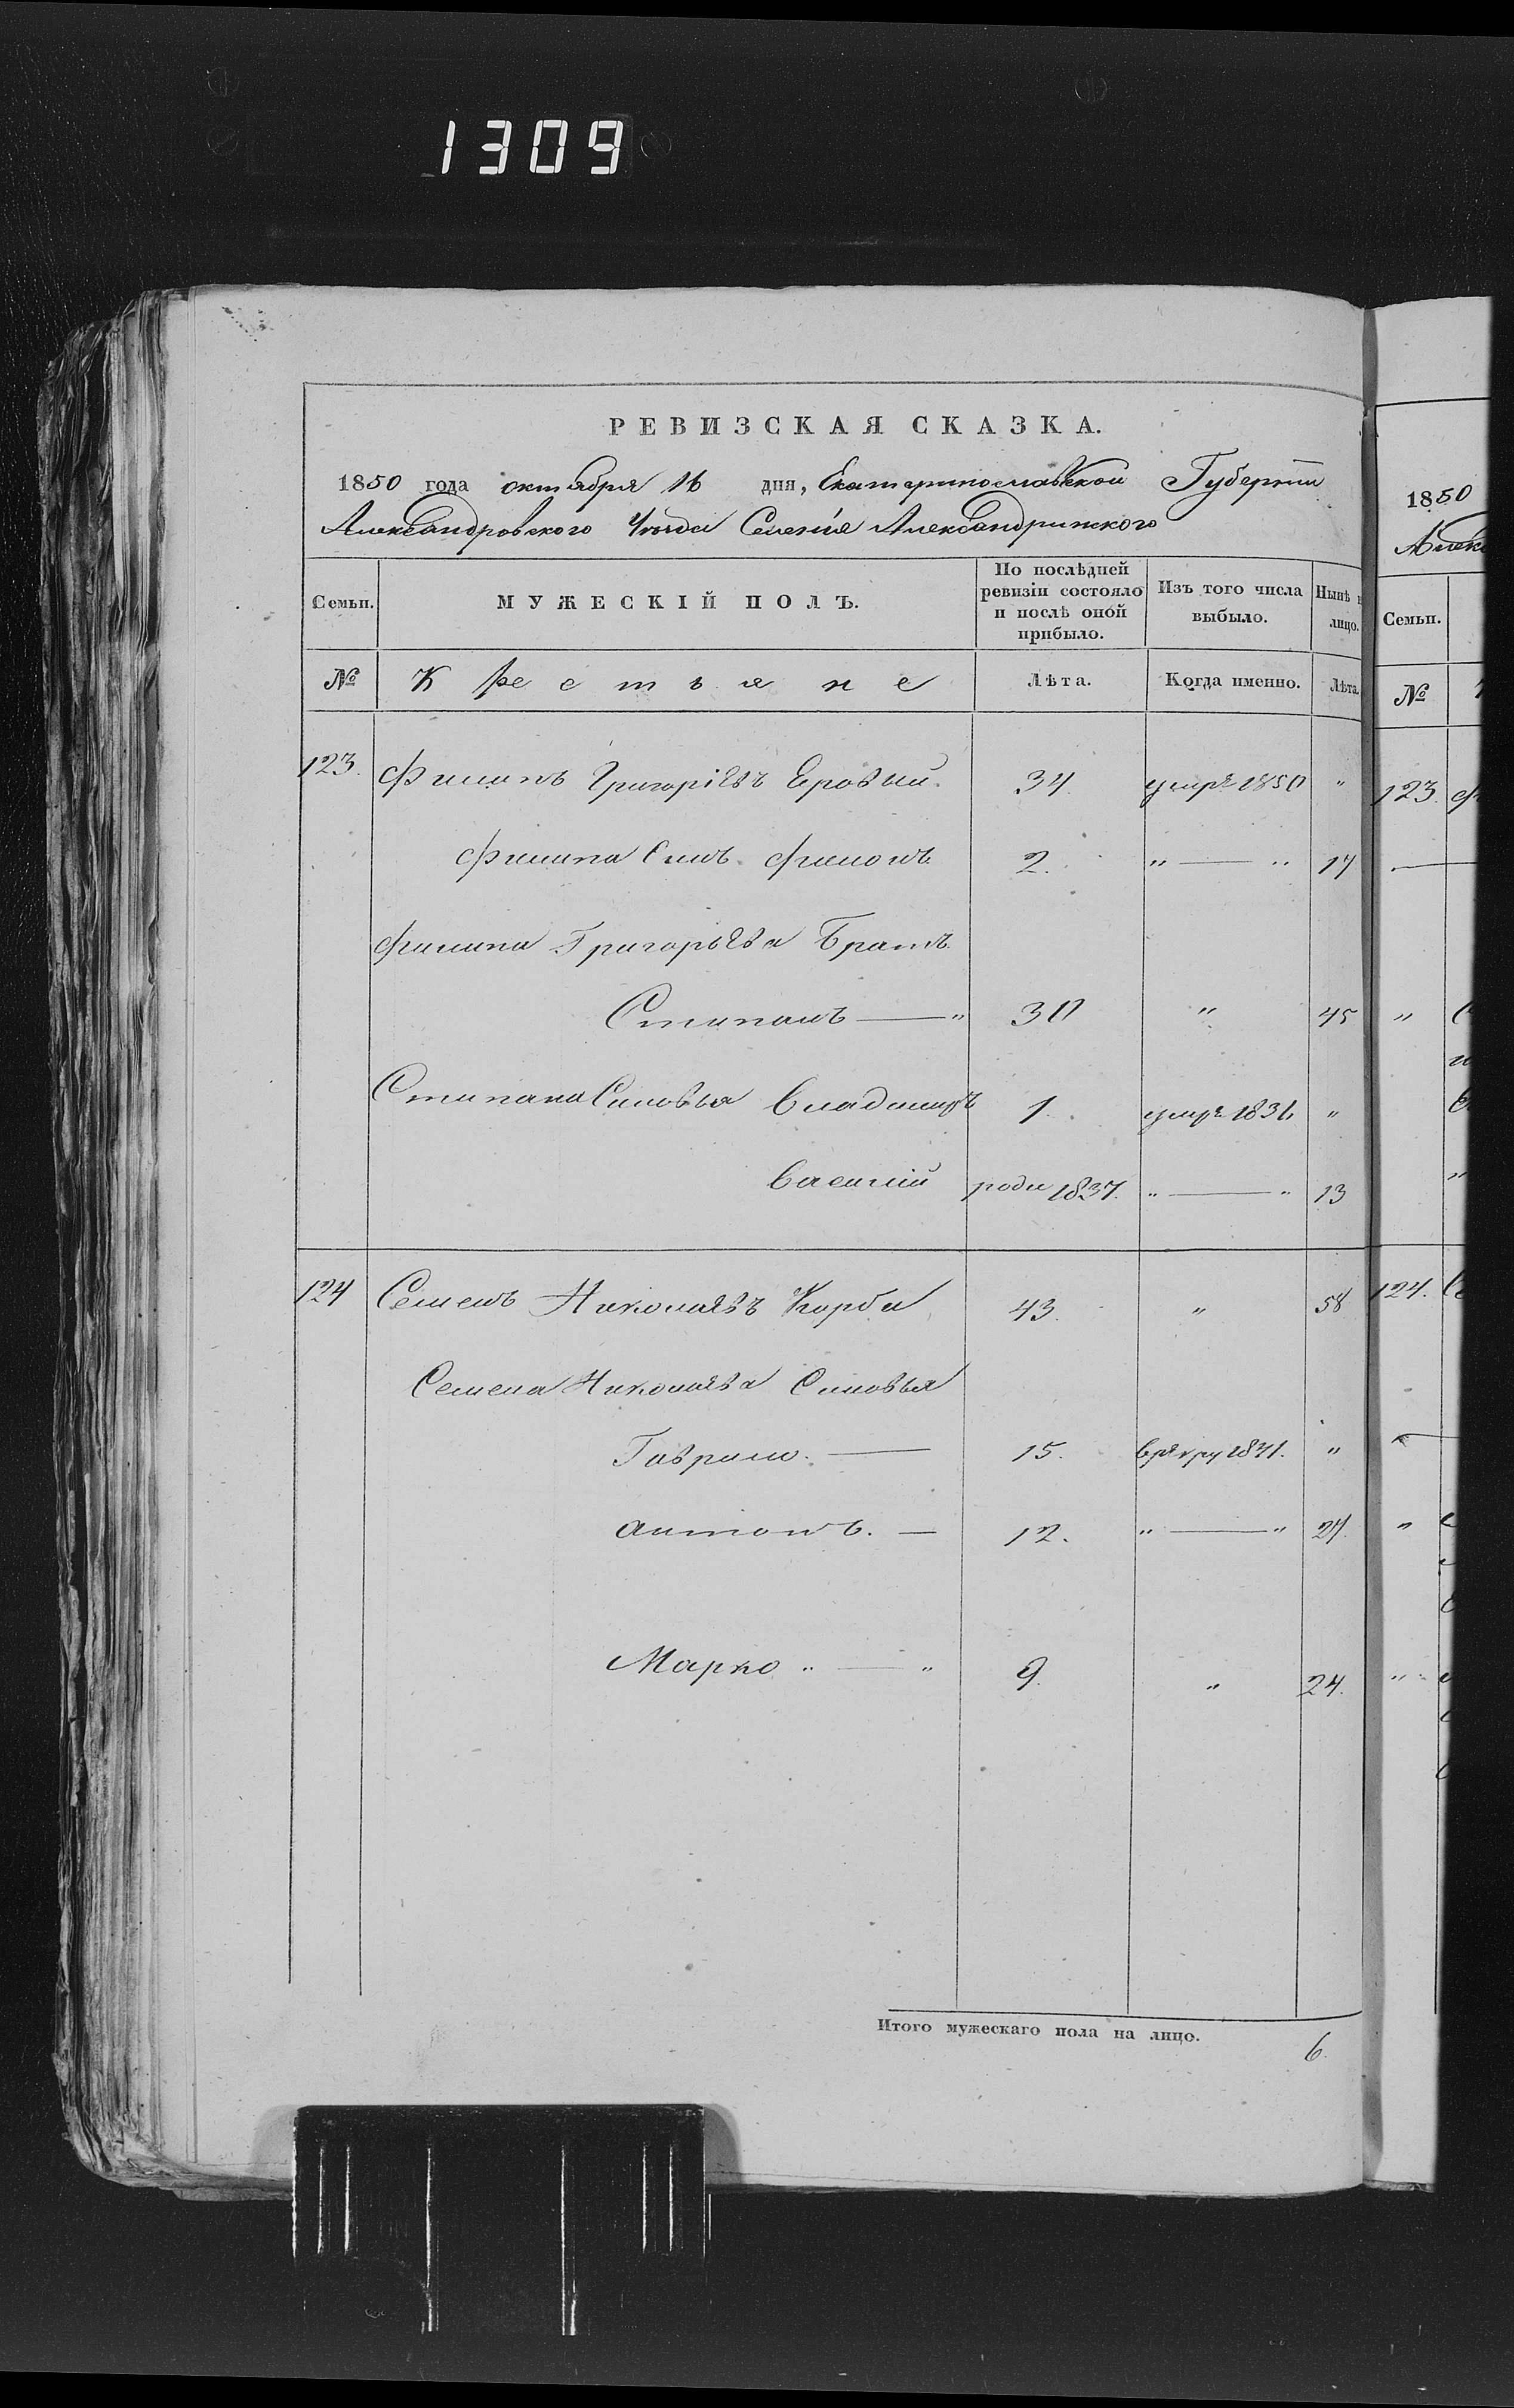 1309
РЕВИЗСКАЯ СКАЗКА.
1850 года октября 16 дня, Екатеринославской Губернии
Александровского Уезда Селения Александринского
Семьи. МУЖЕСКІЙ ПОЛЪ. По послѣдней ревизіи состояло и послѣ оной прибыло. Изъ того числа выбыло. Нынѣ лицо.
№ Крестьяне Лѣта. Когда именно. Лѣта.
123. Филипъ Григоріевъ Еровый. 34. умре 1850 "
Филипа Синъ Филонъ 2. " — " 17
Филипа Григорьева Братъ
Стипанъ — " 30 " 45
Стипана Синовья Владимиръ 1. умре 1836 "
Василій роди 1837. " — " 13
124 Семенъ Николаевъ Корба 43. " 58
Семена Николаева Синовья
Гаврило. — 15. 1841. "
Антонъ. — 12. " — " 27.
Марко " — " 9. " 24.
Итого мужескаго пола на лицо. 6.
1850
Семьи.
№
123.
124.